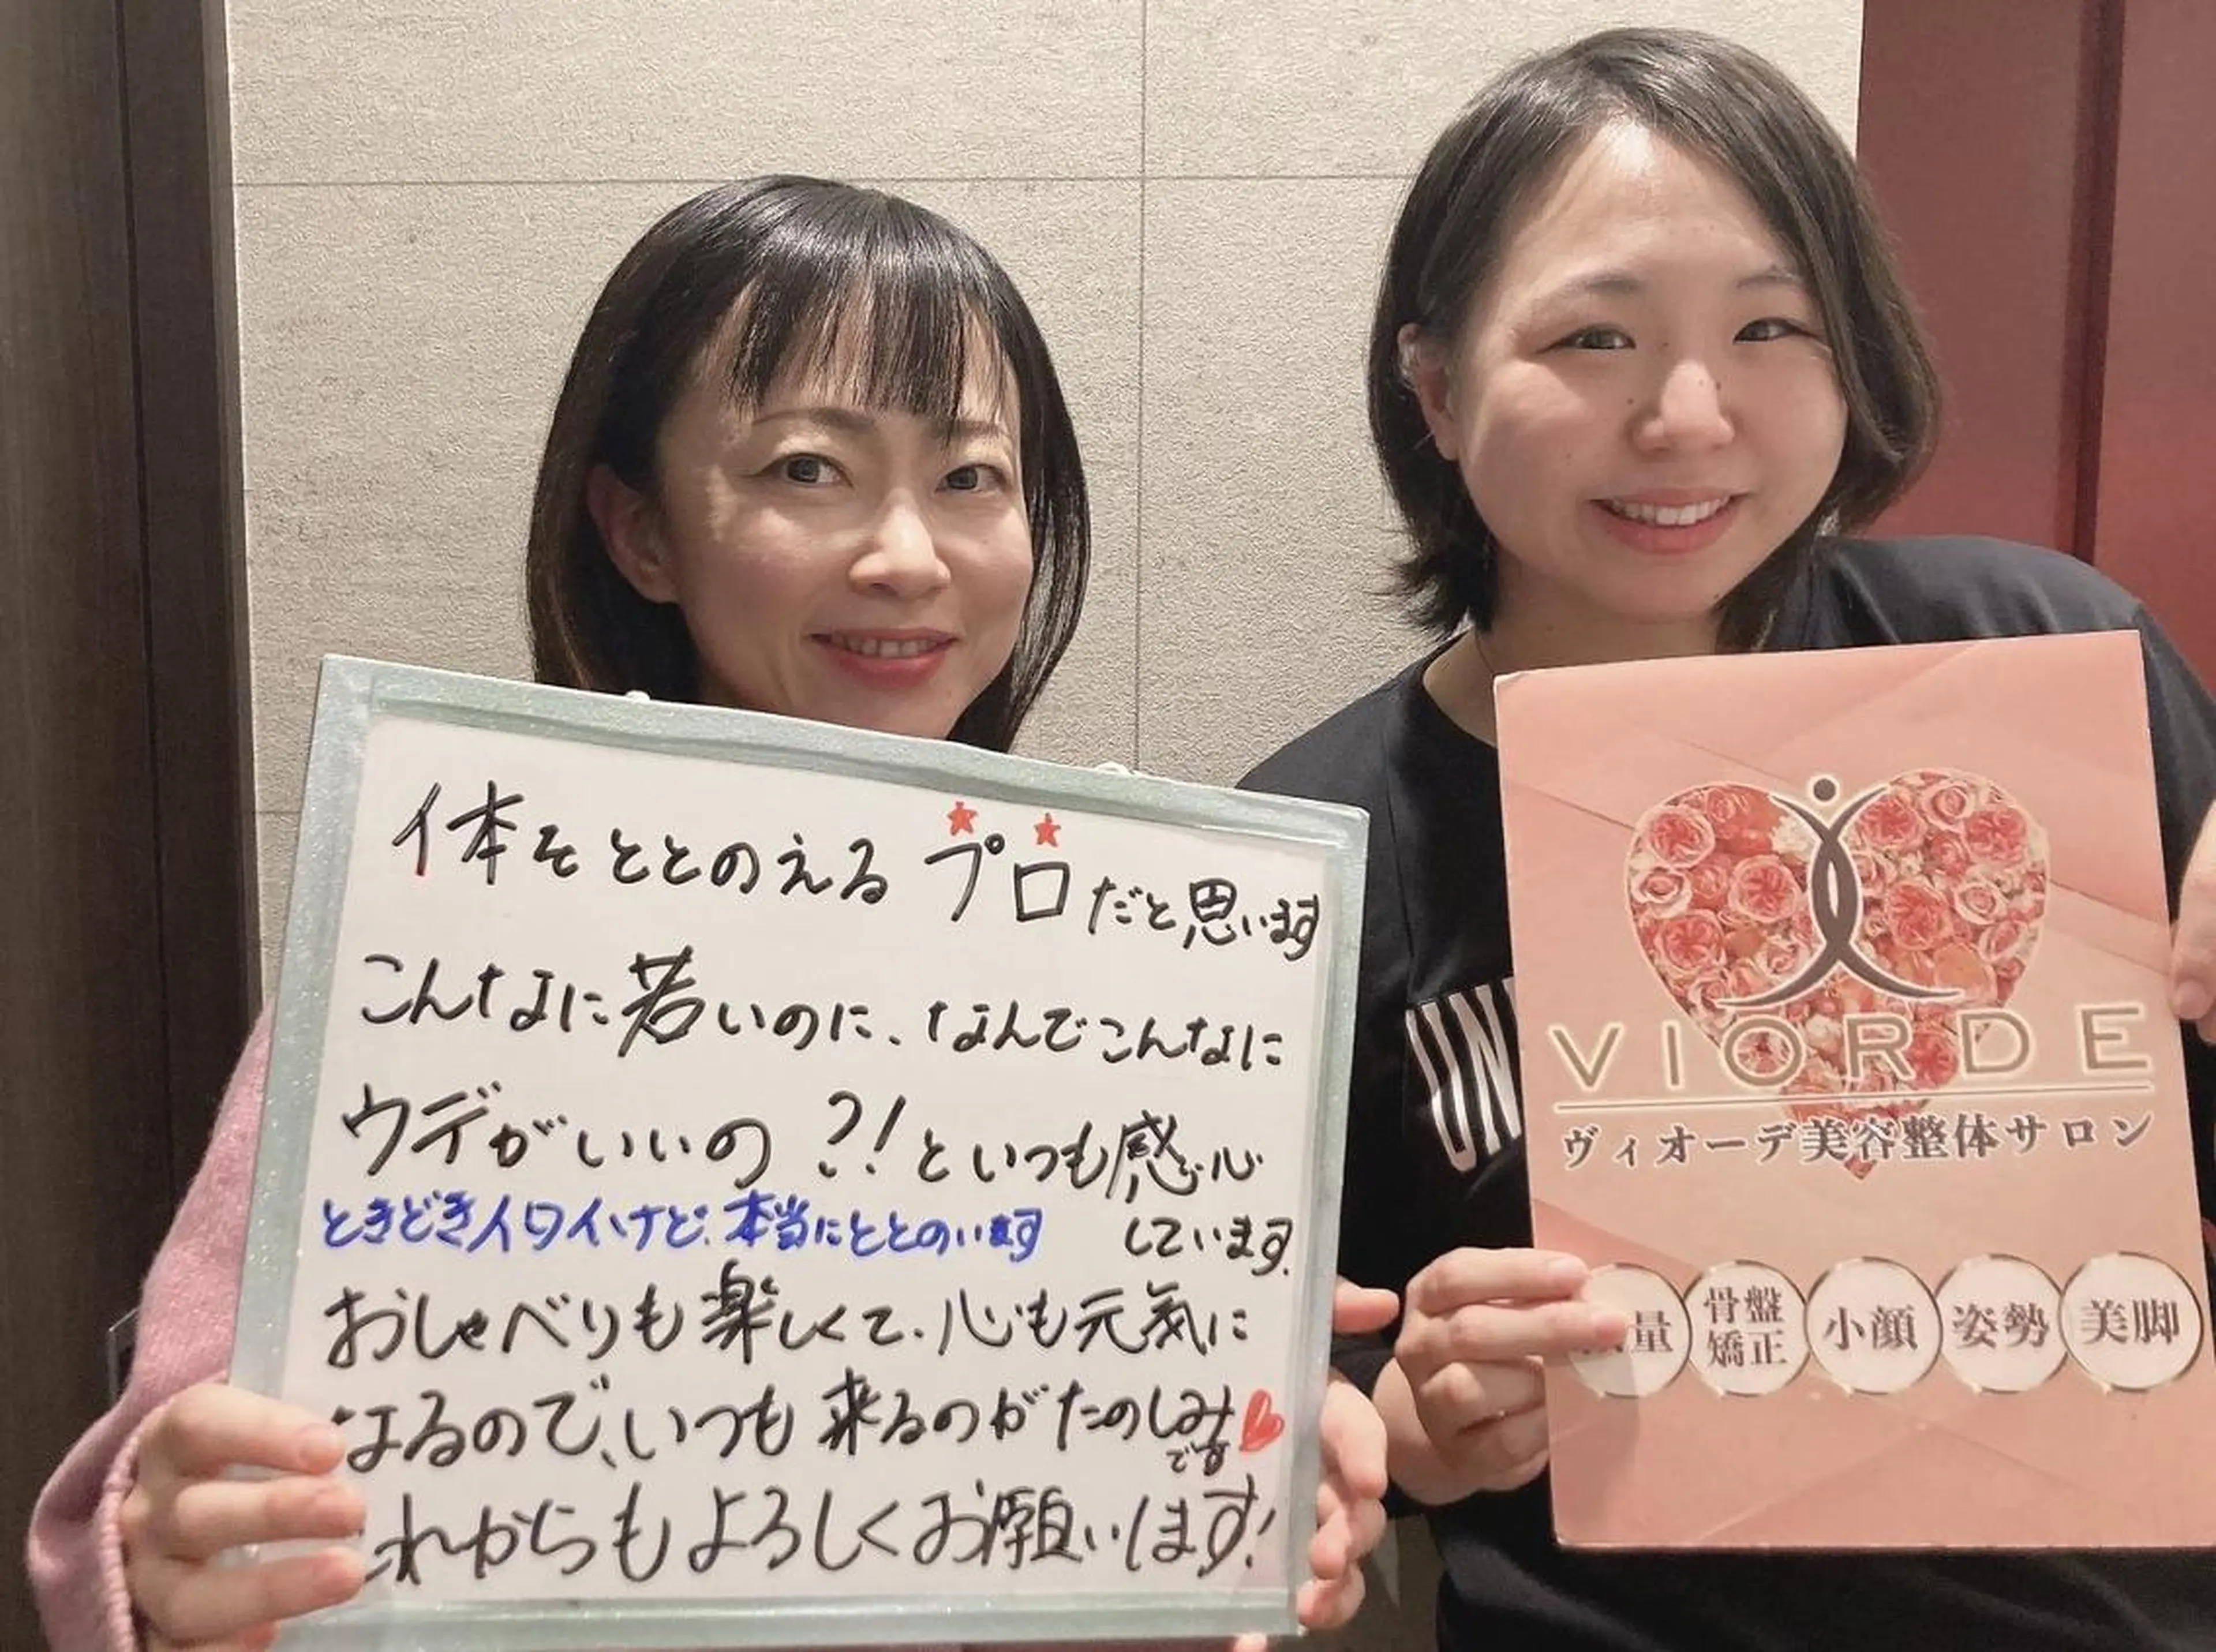 体をととのえるプロだと思います
こんなに若いのに、なんでこんなに
ウデがいいの?!といつも感心
しています。
ときどきイタイけど、本当にととのいます
おしゃべりも楽しくて、心も元気に
なるので、いつも来るのがたのしみ
です
これからもよろしくお願いします!
UN
VIORDE
ヴィオーデ美容整体サロン
量
骨盤
矯正
小顔
姿勢
美脚